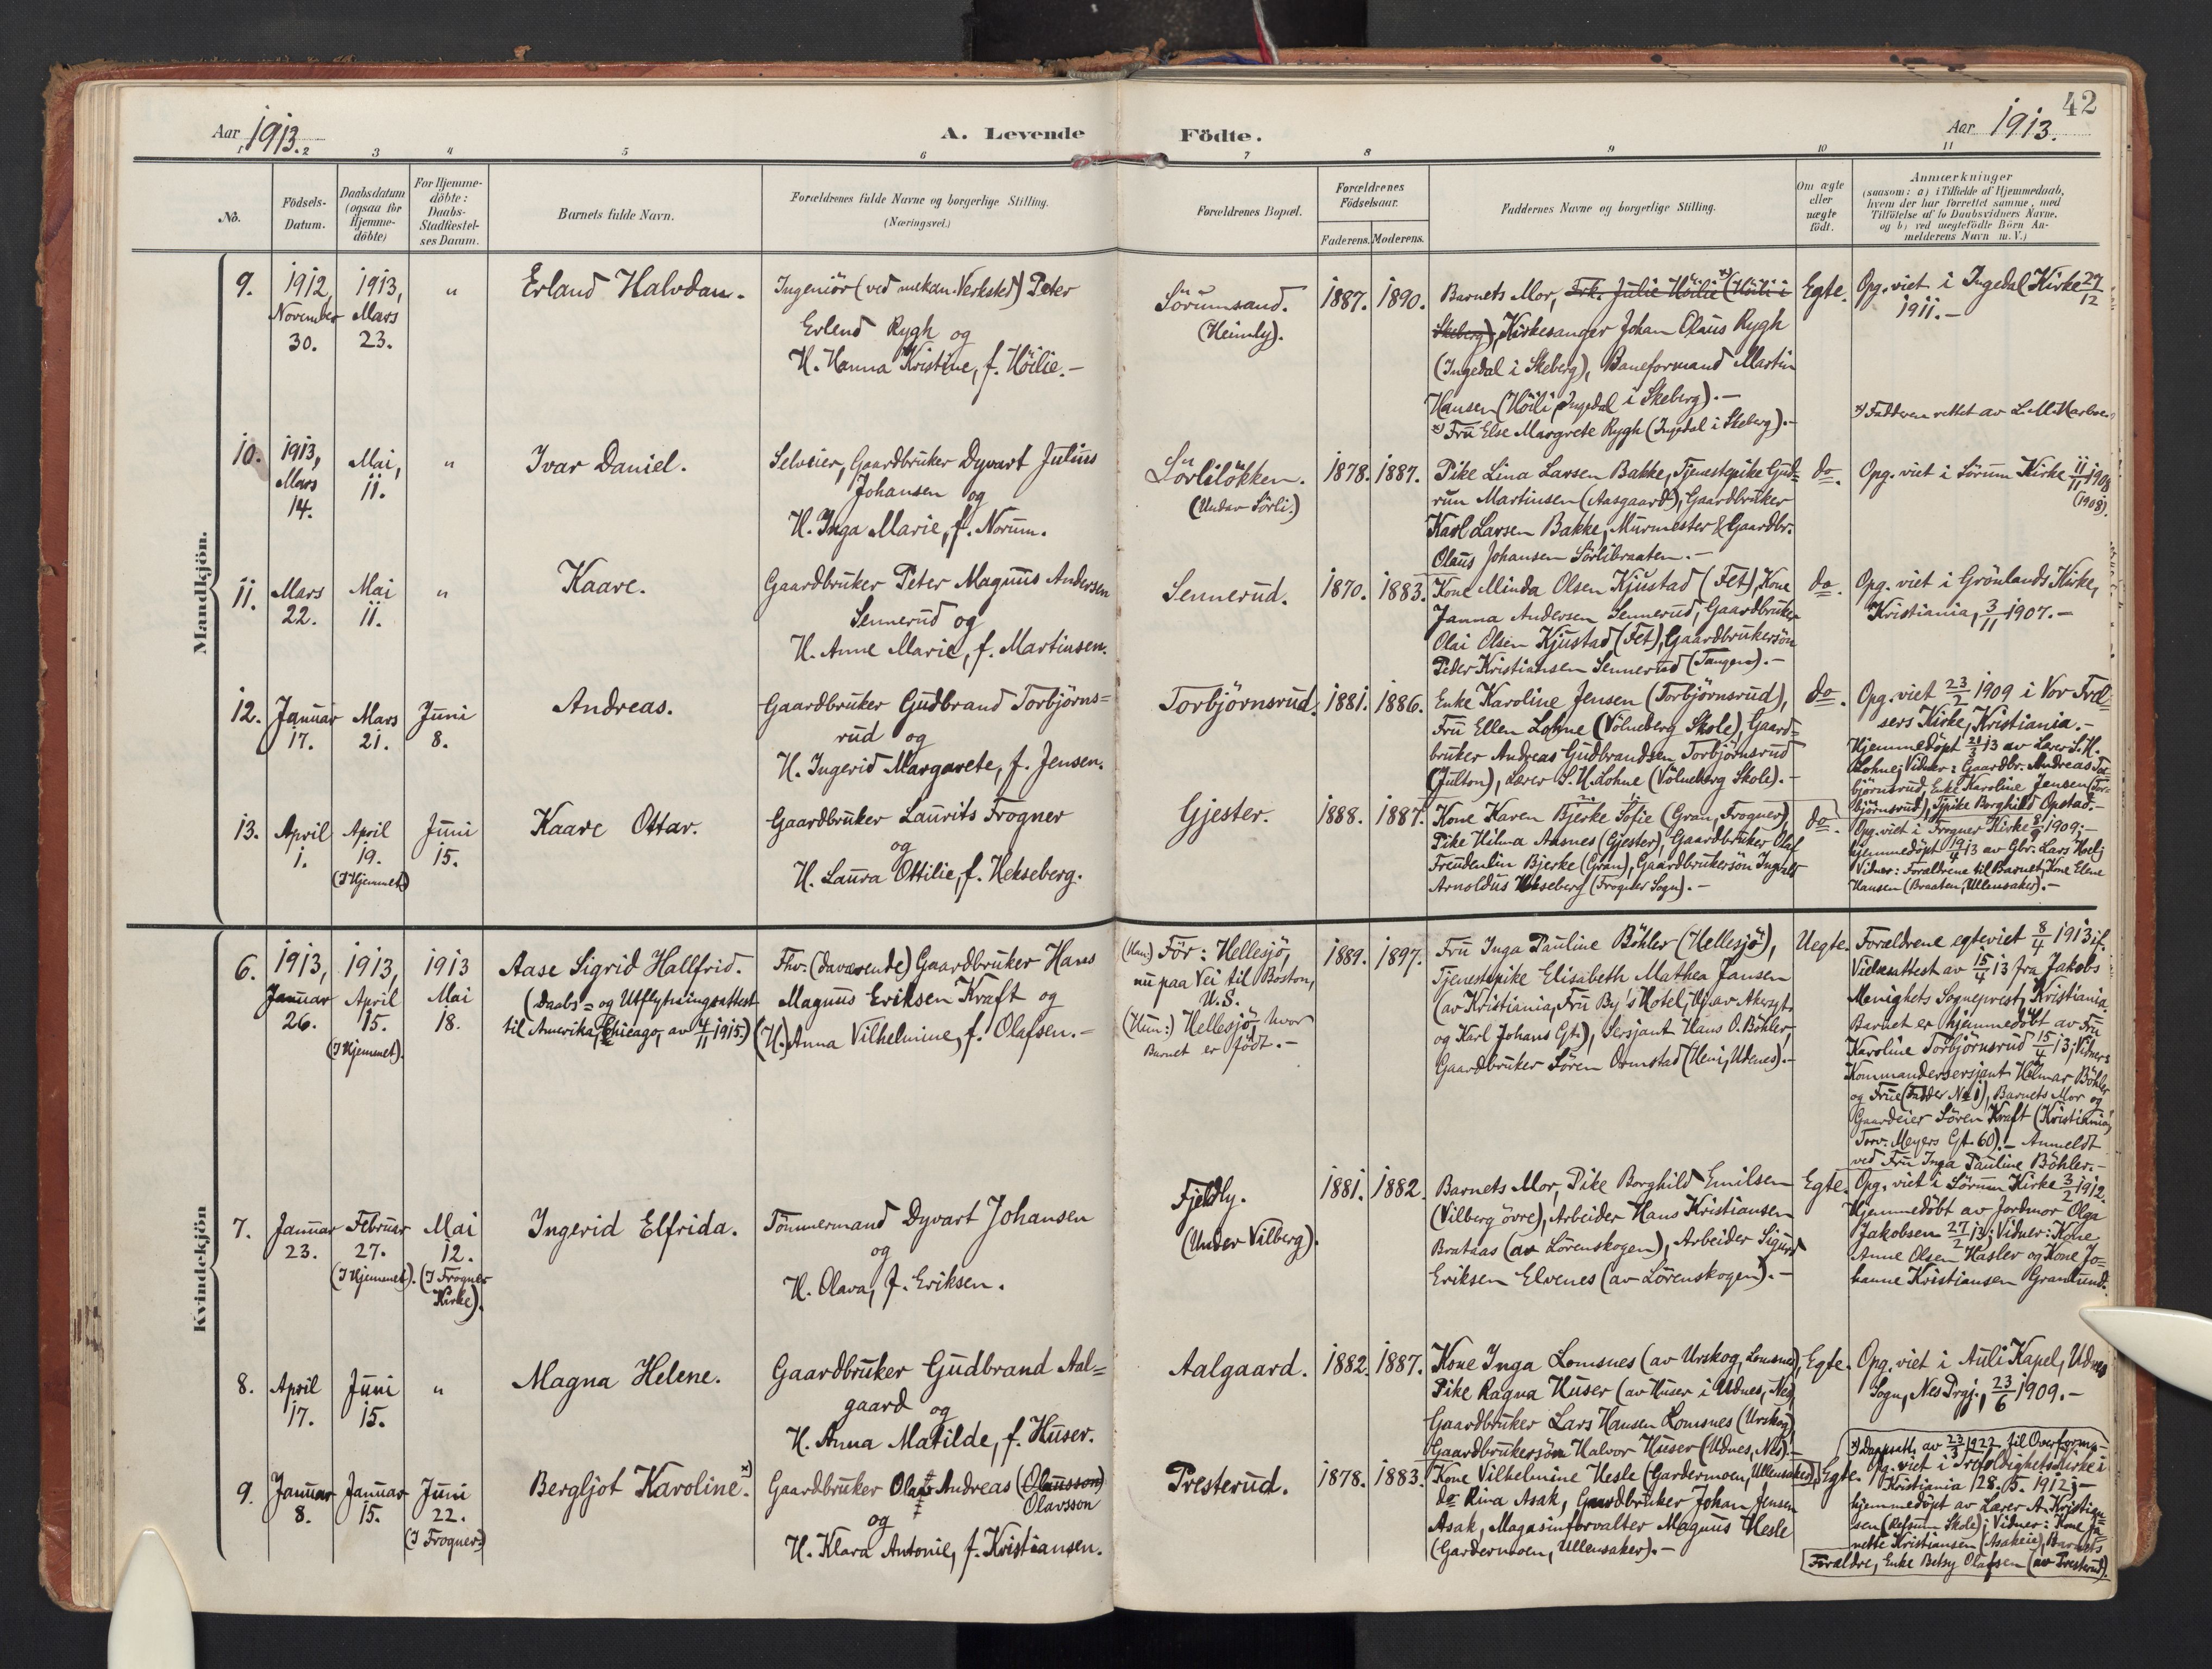 Aar 1913.
A. Levende
Födte.
Aar 1913.
42
1 2 3 4 5 6 7 8 9 10 11
No.
Födsels-
Datum.
Daabsdatum
(ogsaa for
Hjemme-
döbte)
For Hjemme-
döbte:
Daabs-
Stadfæstel-
ses Datum.
Barnets fulde Navn.
Forældrenes fulde Navne og borgerlige Stilling.
(Næringsvei.)
Forældrenes Bopæl.
Forældrenes
Födselsaar.
Faderens. Moderens.
Faddernes Navne og borgerlige Stilling.
Om ægte
eller
uægte
födt.
Anmærkninger
(saasom: a) i Tilfælde af Hjemmedaab,
hvem der har forrettet samme, med
Tilföielse af to Daabsvidners Navne,
og b) ved uægtefödte Börn An-
melderens Navn m. V.)
Mandkjön.
9.
1912,
November
30.
1913,
Mars
23.
"
Erland Halvdan.
Ingeniör (ved mekan. Verksted) Peter
Erlend Rygh og
H. Hanna Kristine, f. Höilie.-
Sörumsand.
(Heimly).
1887. 1890.
Barnets Mor, Frk. Julie Höilie x) (Höili i
Skeberg), Kirkesanger Johan Olaus Rygh
(Ingedal i Skeberg), Baneformand Martin
Hansen (Höili, Ingedal i Skeberg).-
x) Fru Else Margrete Rygh (Ingedal i Skeberg).-
Egte.
Opg. viet i Ingedal Kirke 27/12
1911.-
x) Fadderen rettet av L. M.
10.
1913,
Mars
14.
Mai,
11.
"
Ivar Daniel.
Selveier, Gaardbruker Dyvart Julius
Johansen og
H. Inga Marie, f. Norum.
Sörlilökken.
(Under Sörli.)
1878. 1887.
Pike Lina Larsen Bakke, Tjenestepike Gud=
run Martinsen (Aasgaard), Gaardbruker
Karl Larsen Bakke, Murmester & Gaardbr.
Olaus Johansen Sörlibraaten.-
do.
Opg. viet i Sörum Kirke 11/11 1908
(1908).
11.
Mars
22.
Mai
11.
"
Kaare.
Gaardbruker Peter Magnus Andersen
Sennerud og
H. Anne Marie, f. Martinsen.
Sennerud.
1870. 1883.
Kone Minda Olsen Kjustad (Fet), Kone
Janna Andersen Sennerud, Gaardbruker
Olai Olsen Kjustad (Fet), Gaardbrukersön
Peder Kristiansen Sennerud (Tangen).-
do.
Opg. viet i Grönlands Kirke,
Kristiania, 3/11 1907.-
12.
Januar
17.
Mars
21.
Juni
8.
Andreas.
Gaardbruker Gudbrand Torbjörns=
rud og
H. Ingerid Margarete, f. Jensen.
Torbjörnsrud.
1881. 1886.
Enke Karoline Jensen (Torbjörnsrud),
Fru Ellen Lohne (Völneberg Skole), Gaard=
bruker Andreas Gudbrandsen Torbjörnsrud
(Julton), Lærer S. H. Lohne (Völneberg Skole).-
do.
Opg. viet 23/2 1909 i Vor Frel=
sers Kirke, Kristiania.-
Hjemmedöpt 21/3 13 av Lærer S. H.
Lohne; Vidner: Gaardbr. Andreas Tor=
björnsrud, Enke Karoline Jensen (Tor=
björnsrud), Tjpike Borghild Opstad.-
13.
April
1.
April
19.
(I Hjemmet)
Juni
15.
Kaare Ottar.
Gaardbruker Laurits Frogner
og
H. Laura Ottilie, f. Hekseberg.
Gjester.
1888. 1887.
Kone Karen Bjerke Sofie (Gran, Frogner),
Pike Hilma Aasnes (Gjester), Gaardbruker Olaf
Freudenlin Bjerke (Gran), Gaardbrukersön Ingvald
Arnoldus Hekseberg (Frogner Sogn).-
do.
Opg. viet i Frogner Kirke 8/9 1909;-
hjemmedöpt 19/4 13 av Gbr. Lars
Vidner: Forældrene til Barnet, Kone Elene
Hansen (Braaten, Ullensaker).-
Kvindekjön
6.
1913,
Januar
26.
1913,
April
15.
(I Hjemmet).
1913
Mai
18.
Aase Sigrid Hallfrid.
(Daabs= og Utflytningsattest
til Amerika, Chicago, av 4/11 1915.)
Fhv. (daværende) Gaardbruker Hans
Magnus Eriksen Kraft og
(H.) Anna Vilhelmine, f. Olafsen.-
(Han:) För: Hellesjö,
nu paa Vei til Boston,
U. S.
(Hun:) Hellesjö, hvor
Barnet er födt.-
1889. 1897.
Fru Inga Pauline Böhler (Hellesjö),
Tjenestepike Elisabeth Mathea Jansen
(av Kristiania, Fru By's Hotel, Hj. av Akersgt
og Karl Johans Gt.), Sersjant Hans O. Böhler,
Gaardbruker Sören Ormstad (Heni, Udenes).-
Uegte.
Forældrene egteviet 8/4 1913 if.
Vielsesattest av 15/4 13 fra Jakobs
Menighets Sogneprest, Kristiania.
Barnet er hjemmedöbt av Fru
Karoline Torbjörnsrud 15/4 13; Vidner:
Kommandersersjant Hilmar Böhler
og Frue (Fadder No 1), Barnets Mor og
Gaardeier Sören Kraft (Kristiania,
Torv. Meyers Gt. 60).- Anmeldt
ved Fru Inga Pauline Böhler.-
7.
Januar
23.
Februar
27.
(I Hjemmet).
Mai
12.
(I Frogner
Kirke).
Ingerid Elfrida.
Tömmermand Dyvart Johansen
og
H. Olava, f. Eriksen.
Fjeldly.
(Under Vilberg).
1881. 1882.
Barnets Mor, Pike Borghild Emilsen
(Vilberg övre), Arbeider Hans Kristiansen
Brataas (av Lörenskogen), Arbeider Sigurd
Eriksen Elvenes (av Lörenskogen).-
Egte.
Opg. viet i Sörum Kirke 3/2 1912.
Hjemmedöbt av Jordmor Olga
Jakobsen 27/2 13; Vidner: Kone
Anne Olsen Hasler og Kone Jo=
hanne Kristiansen Granlund.
8.
April
17.
Juni
15.
"
Magna Helene.
Gaardbruker Gudbrand Aal=
gaard og
H. Anna Matilde, f. Huser.
Aalgaard.
1882. 1887.
Kone Inga Lomsnes (av Urskog, Lomsnes),
Pike Ragna Huser (av Huser i Udnes, Nes)
Gaardbruker Lars Hansen Lomsnes (Urskog)
Gaardbrukersön Halvor Huser (Udnes, Nes).-
Egte.
Opg. viet i Auli Kapel, Udnes
Sogn, Nes Prgj., 23/6 1909.-
9.
Januar
8.
Januar
15.
Juni
22.
(I Frogner)
Bergljot Karoline. x)
Gaardbruker Olaf Andreas (Olausson)
Olavsson
og
H. Klara Antonie, f. Kristiansen.
Presterud.
1878. 1883.
Kone Vilhelmine Hesle (Gardermoen, Ullensaker),
do Riva Asak, Gaardbruker Johan Jensen
Asak, Magasinforvalter Magnus Hesle
(Gardermoen, Ullensaker).-
Egte.
x) Daapsatt. av 23/3 1922 til Overform.-
Opg. viet i Trefoldighetskirke i
Kristiania 28.5.1912;-
hjemmedöpt av Lærer A. Kristian=
sen (Refsum Skole); Vidner: Kone Ja=
nette Kristiansen (Asakeie), Barnets
Forældre, Enke Betsy Olafsen (av Presterud).